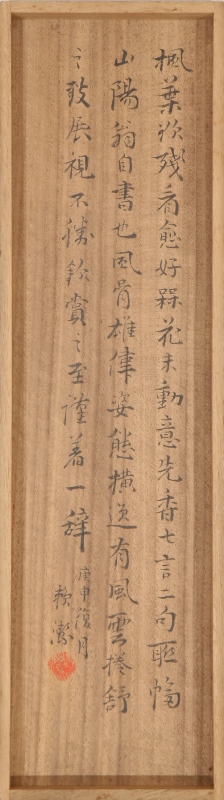 楓葉欲殘看愈好槑花未動意先香七言二句聯幅
山陽翁自書也風骨雄偉姿態橫逸有風雲捲舒
之致展視不勝欽賞之至謹着一辭
庚申復月
賴潔